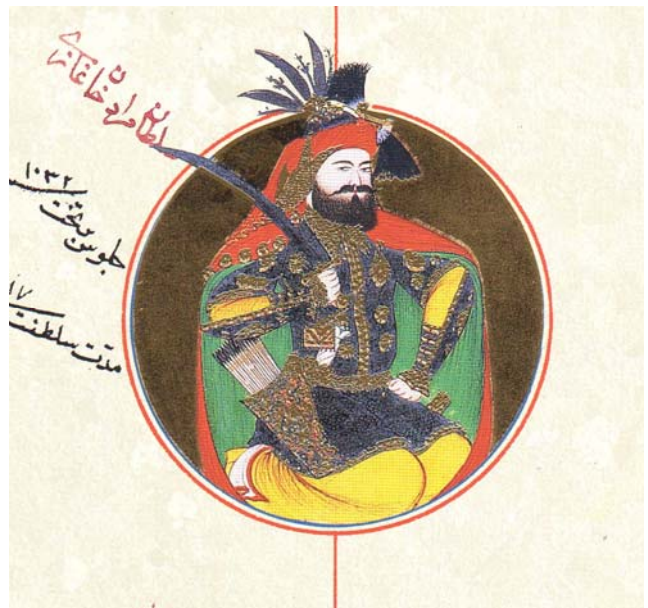 سلطان مراد خان غازی
جلوس بتخت
١٠٣٢
مدت سلطنت
١٧